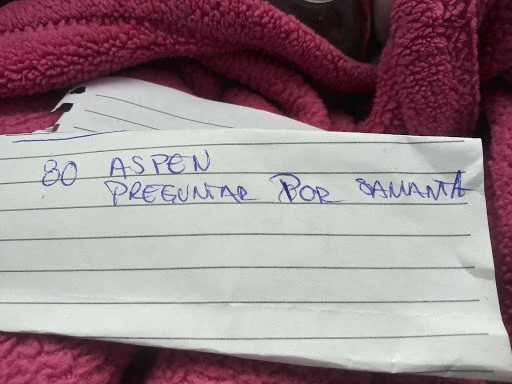 80 ASPEN
PREGUNTAR POR SAMANTA